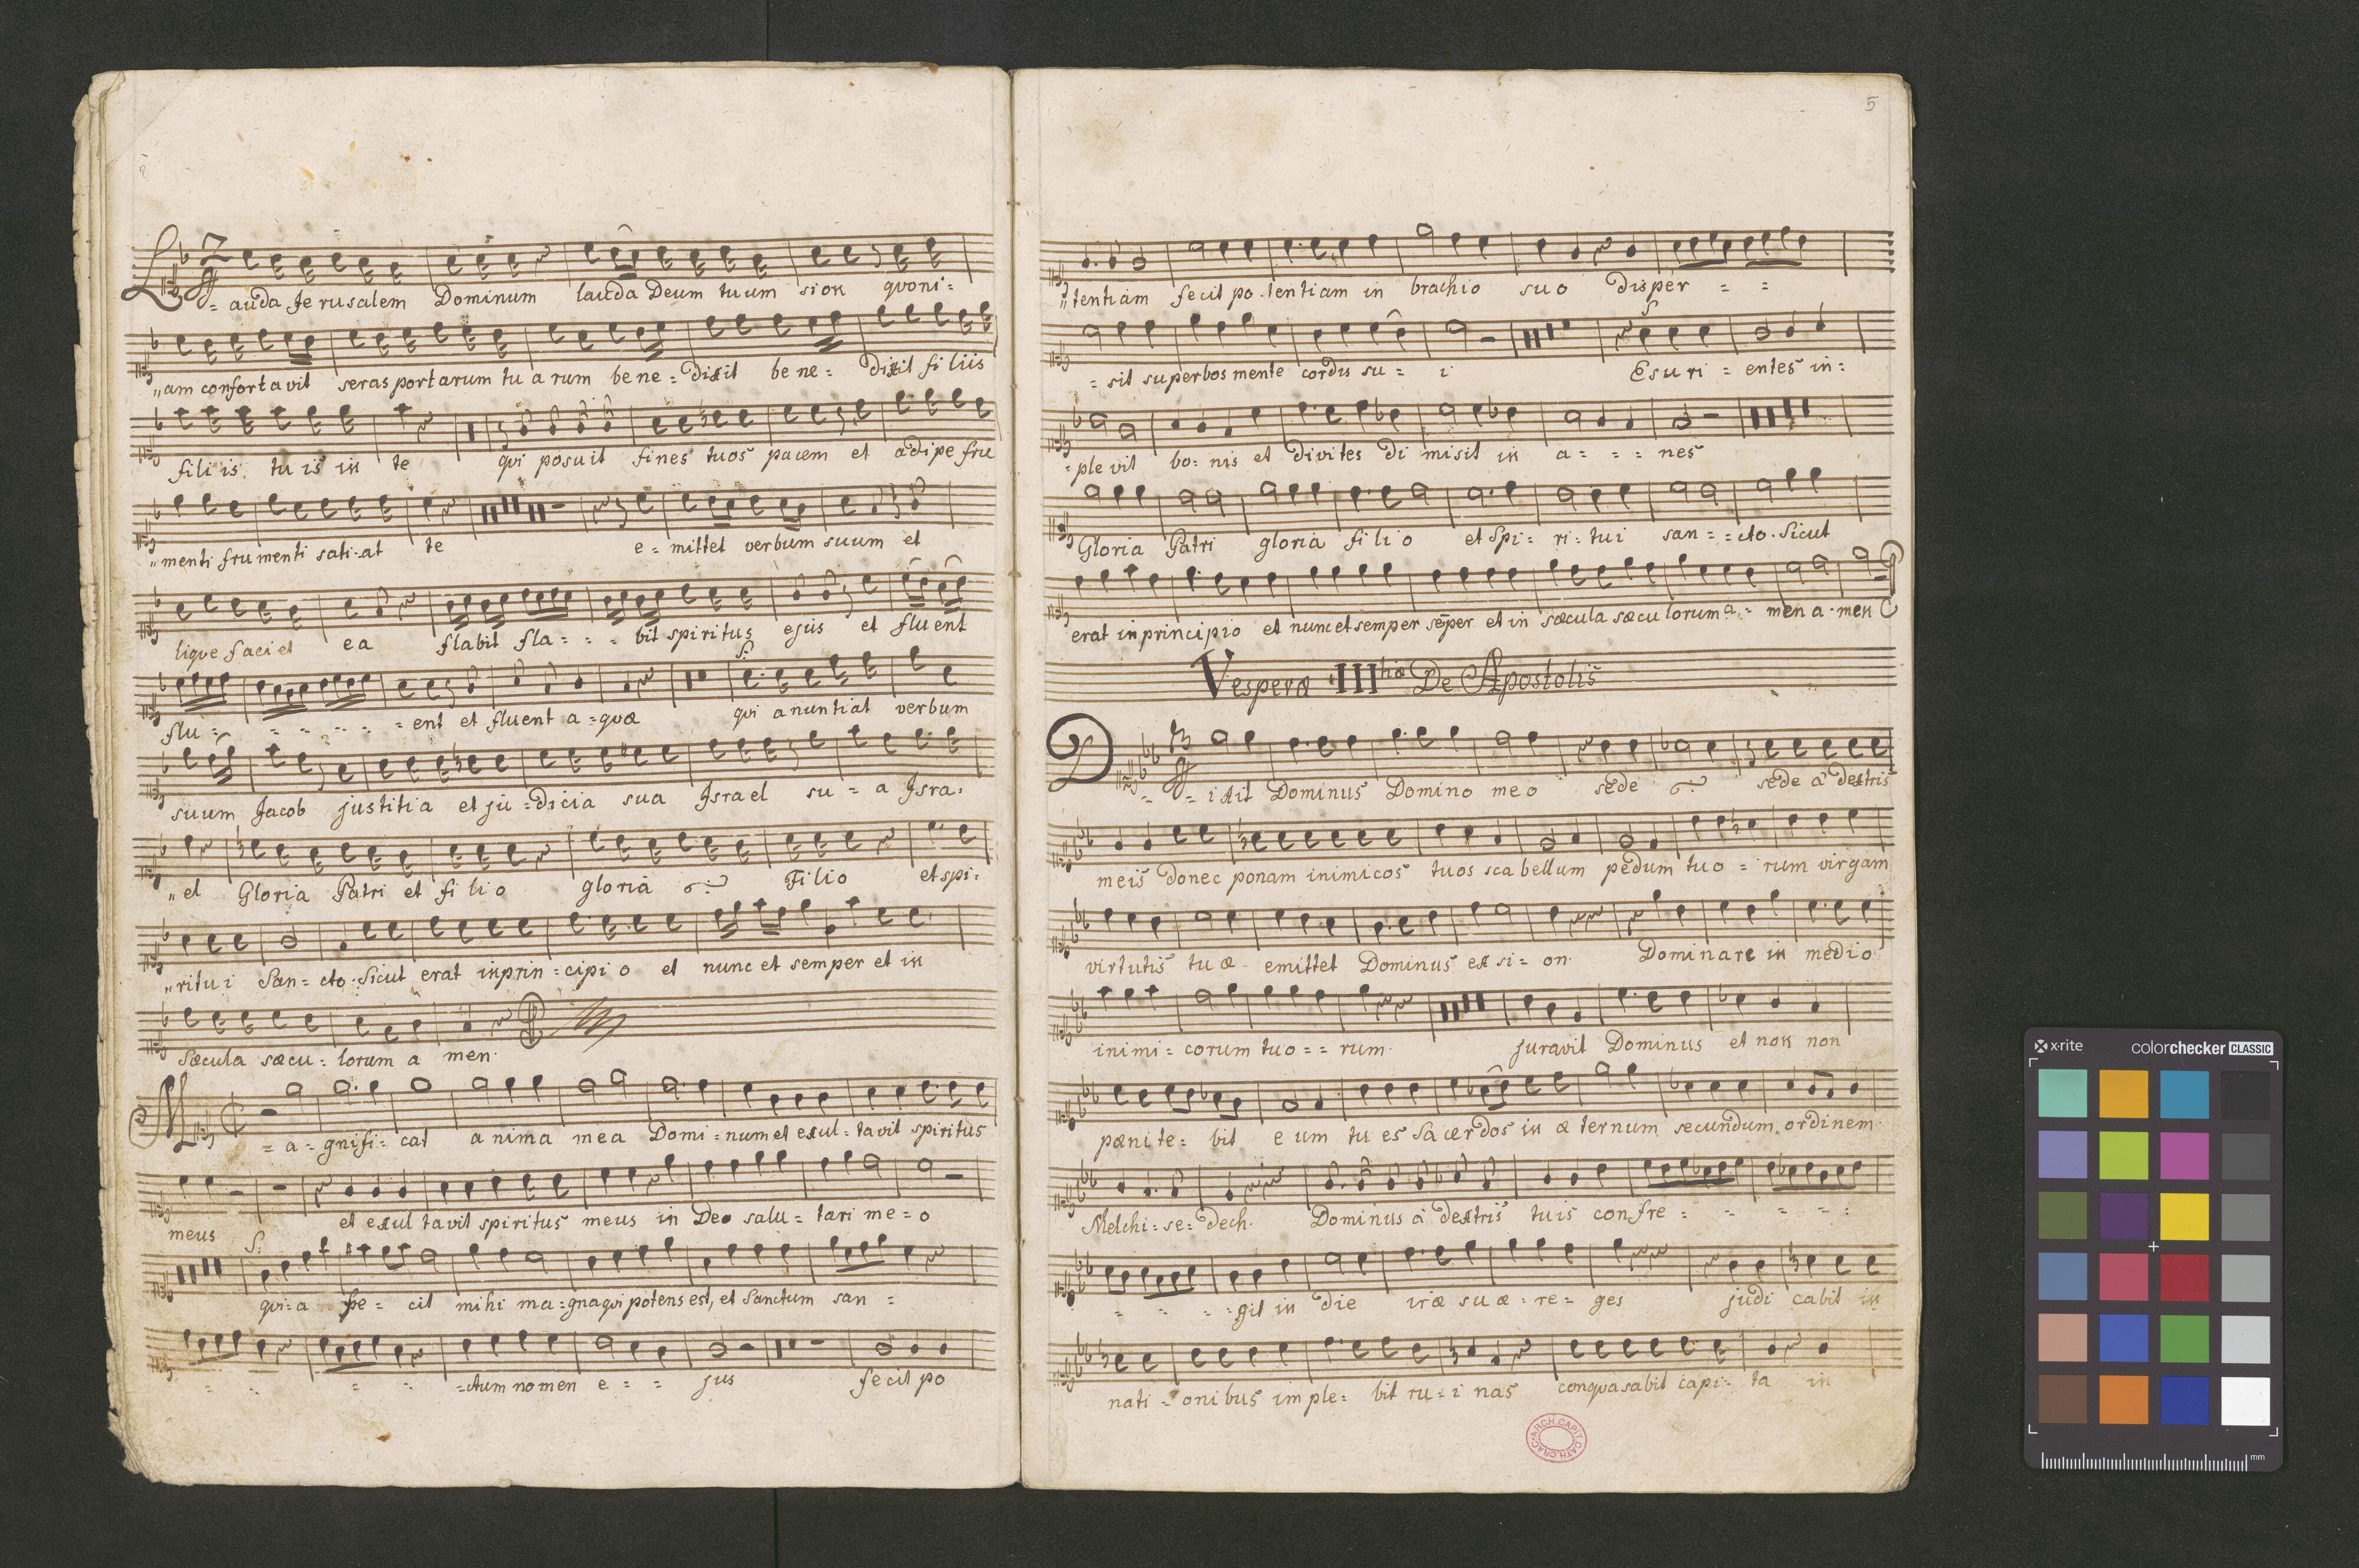 L = auda Je rusalem Dominum lauda Deum tuum sion quoni =
"am confortavit seras portarum tu a rum be ne = dixit be ne = dixit fi liis
fili is. tu is in te qui posuit fines tuos pacem et adipe fru
"menti frumenti sati-at te e = mittet verbum suum et
lique faci et ea flabit fla = = = bit spiritus ejus et fluent
flu = = = = = = ent et fluent a = quæ S: qui anuntiat verbum
suum Jacob justitia et ju = dicia sua Israel su = a Isra.
"el Gloria Patri et fi li o gloria Filio et spi =
"ritu i San = cto. Sicut erat in prin = cipi o et nunc et semper et in
Sæcula sæcu = lorum a men.
M = a = gnifi = cat anima mea Domi = num et exul = tavit spiritus
meus et exul tavit spiritus meus in Deo salu = tari me = o
S: qui = a fe = cit mihi ma = gna qui potens est, et Sanctum san =
= = = = = ctum nomen e = = jus fecit po
5
"tentiam fecit po. tentiam in brachio suo disper = =
= sit superbos mente cordis su = i S Esu ri = entes in =
= ple vit bo = nis et divites di misit in a = = = nes
Gloria Patri gloria fi li o et Spi = ri = tui san = = cto. Sicut
erat in principio et nunc et semper sēper et in sæcula sæcu lorum a = men a - men
Vesperæ IIItiæ De Apostolis
D = = ixit Dominus Domino meo sede sede a dextris
meis donec ponam inimicos tuos sca bellum pedum tuo = rum virgam
virtutis tu æ. emittet Dominus ex si = on. Dominare in medio
inimi = corum tuo = = rum. juravit Dominus et non non
pænite = bit e um tu es Sacerdos in æ ternum secundum. ordinem
Melchi = se = dech. Dominus a dextris tuis confre = = = = =
= = = = git in die iræ su æ = re = ges judi cabit in
nati = onibus im ple = bit ru = i nas conquasabit capi = ta in
ARCH. CAPIT. CATH. CRAC.
x-rite
colorchecker CLASSIC
mm